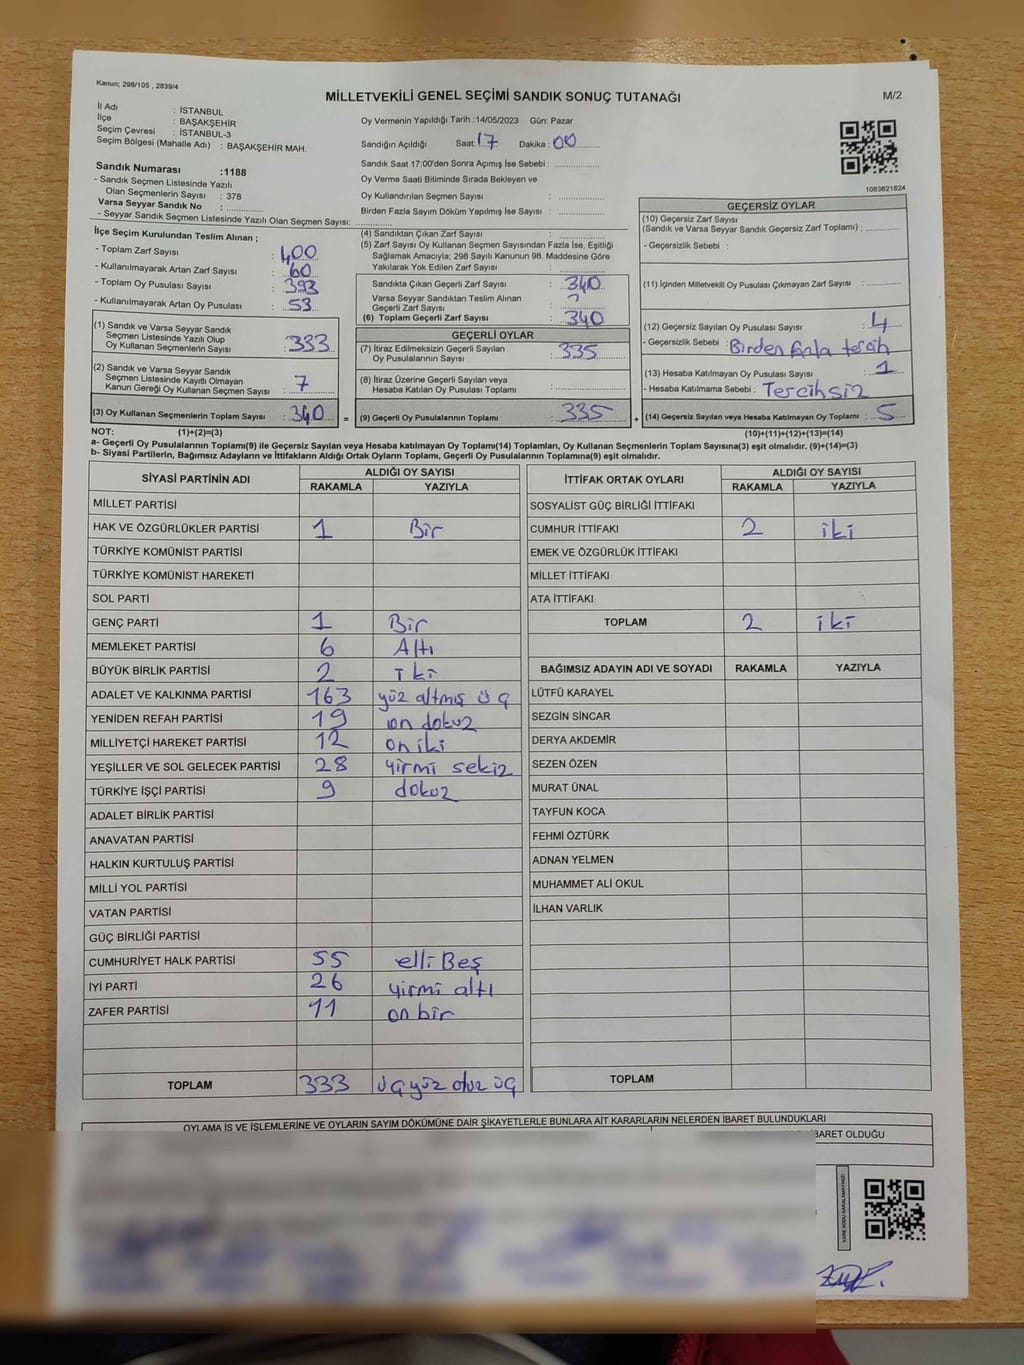 Kanun; 298/105 , 2839/4
MİLLETVEKİLİ GENEL SEÇİMİ SANDIK SONUÇ TUTANAĞI
M/2
İl Adı : İSTANBUL
İlçe : BAŞAKŞEHİR
Seçim Çevresi : İSTANBUL-3
Seçim Bölgesi (Mahalle Adı) : BAŞAKŞEHİR MAH.
Oy Vermenin Yapıldığı Tarih :14/05/2023 Gün: Pazar
Sandığın Açıldığı Saat: 17 Dakika : 00
Sandık Saat 17:00'den Sonra Açımış İse Sebebi :
Oy Verme Saati Bitiminde Sırada Bekleyen ve
Oy Kullandırılan Seçmen Sayısı :
Birden Fazla Sayım Döküm Yapılmış İse Sayısı :
1083621824
Sandık Numarası :1188
- Sandık Seçmen Listesinde Yazılı
Olan Seçmenlerin Sayısı : 378
Varsa Seyyar Sandık No :
- Seyyar Sandık Seçmen Listesinde Yazılı Olan Seçmen Sayısı:
İlçe Seçim Kurulundan Teslim Alınan ;
- Toplam Zarf Sayısı : 400
- Kullanılmayarak Artan Zarf Sayısı : 60
- Toplam Oy Pusulası Sayısı : 393
- Kullanılmayarak Artan Oy Pusulası : 53
(1) Sandık ve Varsa Seyyar Sandık
Seçmen Listesinde Yazılı Olup
Oy Kullanan Seçmenlerin Sayısı : 333
(2) Sandık ve Varsa Seyyar Sandık
Seçmen Listesinde Kayıtlı Olmayan
Kanun Gereği Oy Kullanan Seçmen Sayısı : 7
(3) Oy Kullanan Seçmenlerin Toplam Sayısı : 340
(4) Sandıktan Çıkan Zarf Sayısı :
(5) Zarf Sayısı Oy Kullanan Seçmen Sayısından Fazla İse, Eşitliği
Sağlamak Amacıyla; 298 Sayılı Kanunun 98. Maddesine Göre
Yakılarak Yok Edilen Zarf Sayısı :
Sandıkta Çıkan Geçerli Zarf Sayısı : 340
Varsa Seyyar Sandıktan Teslim Alınan
Geçerli Zarf Sayısı :
(6) Toplam Geçerli Zarf Sayısı : 340
GEÇERLİ OYLAR
(7) İtiraz Edilmeksizin Geçerli Sayılan
Oy Pusulalarının Sayısı : 335
(8) İtiraz Üzerine Geçerli Sayılan veya
Hesaba Katılan Oy Pusulası Toplamı :
= (9) Geçerli Oy Pusulalarının Toplamı : 335
GEÇERSİZ OYLAR
(10) Geçersiz Zarf Sayısı
(Sandık ve Varsa Seyyar Sandık Geçersiz Zarf Toplamı) :
- Geçersizlik Sebebi :
(11) İçinden Milletvekili Oy Pusulası Çıkmayan Zarf Sayısı :
(12) Geçersiz Sayılan Oy Pusulası Sayısı : 4
- Geçersizlik Sebebi : Birden fazla tercih
(13) Hesaba Katılmayan Oy Pusulası Sayısı : 1
- Hesaba Katılmama Sebebi : Tercihsiz
+ (14) Geçersiz Sayılan veya Hesaba Katılmayan Oy Toplamı : 5
NOT: (1)+(2)=(3) (10)+(11)+(12)+(13)=(14)
a- Geçerli Oy Pusulalarının Toplamı(9) ile Geçersiz Sayılan veya Hesaba katılmayan Oy Toplamı(14) Toplamları, Oy Kullanan Seçmenlerin Toplam Sayısına(3) eşit olmalıdır. (9)+(14)=(3)
b- Siyasi Partilerin, Bağımsız Adayların ve İttifakların Aldığı Ortak Oyların Toplamı, Geçerli Oy Pusulalarının Toplamına(9) eşit olmalıdır.
SİYASİ PARTİNİN ADI ALDIĞI OY SAYISI
RAKAMLA YAZIYLA
MİLLET PARTİSİ
HAK VE ÖZGÜRLÜKLER PARTİSİ 1 Bir
TÜRKİYE KOMÜNİST PARTİSİ
TÜRKİYE KOMÜNİST HAREKETİ
SOL PARTİ
GENÇ PARTİ 1 Bir
MEMLEKET PARTİSİ 6 Altı
BÜYÜK BİRLİK PARTİSİ 2 iki
ADALET VE KALKINMA PARTİSİ 163 yüz altmış üç
YENİDEN REFAH PARTİSİ 19 on dokuz
MİLLİYETÇİ HAREKET PARTİSİ 12 on iki
YEŞİLLER VE SOL GELECEK PARTİSİ 28 yirmi sekiz
TÜRKİYE İŞÇİ PARTİSİ 9 dokuz
ADALET BİRLİK PARTİSİ
ANAVATAN PARTİSİ
HALKIN KURTULUŞ PARTİSİ
MİLLİ YOL PARTİSİ
VATAN PARTİSİ
GÜÇ BİRLİĞİ PARTİSİ
CUMHURİYET HALK PARTİSİ 55 elli Beş
İYİ PARTİ 26 yirmi altı
ZAFER PARTİSİ 11 on bir
TOPLAM 333 üç yüz otuz üç
İTTİFAK ORTAK OYLARI ALDIĞI OY SAYISI
RAKAMLA YAZIYLA
SOSYALİST GÜÇ BİRLİĞİ İTTİFAKI
CUMHUR İTTİFAKI 2 iki
EMEK VE ÖZGÜRLÜK İTTİFAKI
MİLLET İTTİFAKI
ATA İTTİFAKI
TOPLAM 2 iki
BAĞIMSIZ ADAYIN ADI VE SOYADI RAKAMLA YAZIYLA
LÜTFÜ KARAYEL
SEZGİN SİNCAR
DERYA AKDEMİR
SEZEN ÖZEN
MURAT ÜNAL
TAYFUN KOCA
FEHMİ ÖZTÜRK
ADNAN YELMEN
MUHAMMET ALİ OKUL
İLHAN VARLIK
TOPLAM
OYLAMA İŞ VE İŞLEMLERİNE VE OYLARIN SAYIM DÖKÜMÜNE DAİR ŞİKAYETLERLE BUNLARA AİT KARARLARIN NELERDEN İBARET BULUNDUKLARI
İBARET OLDUĞU
KARE KODU KARALAMAYINIZ!